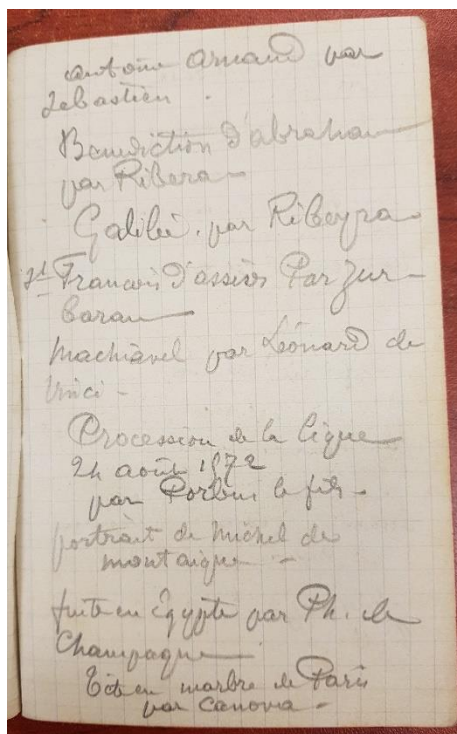 antoine arnaud par
Sebastien.
Benediction d'abraham
par Ribera -
Galilée, par Ribeyra
st François d'assises Par Zur-
baran
Machiavel par Léonard de
Vinci -
Procession de la ligue
24 août 1572
par Porbus le fils -
portrait de Michel de
montaigne -
fuite en Egypte par Ph. de
Champagne
Tête en marbre de Paris
par Canova -